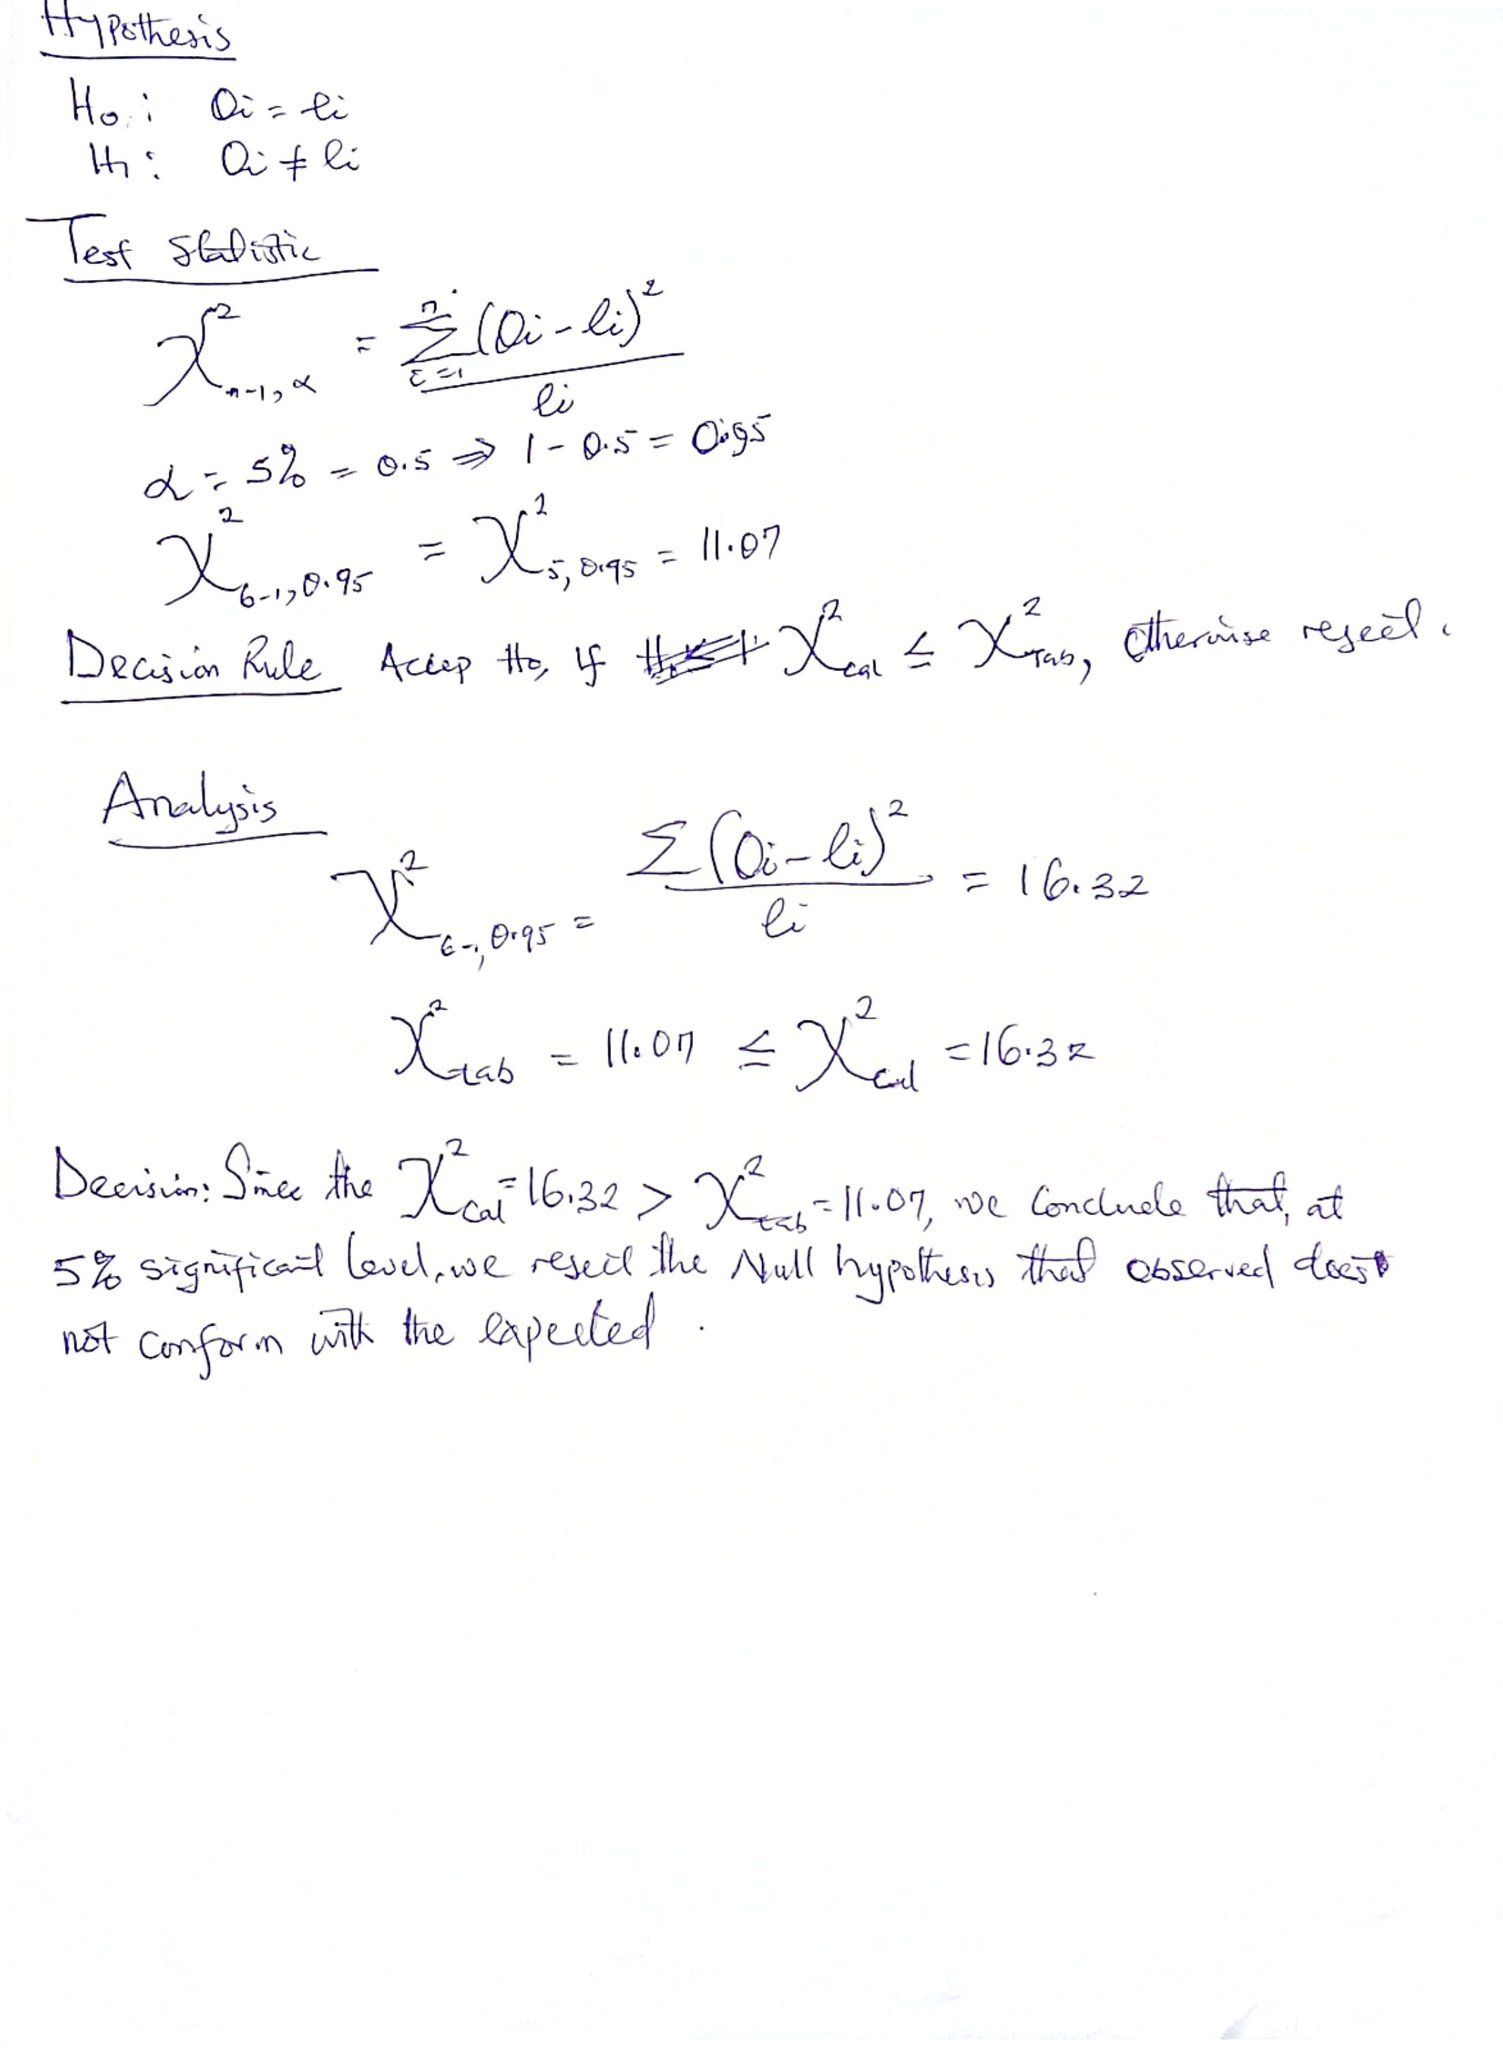 Hypothesis
H₀: Oi = ei
H₁: Oi ≠ ei
Test Statistic
χ²ₙ₋₁, α = Σⁿᵢ₌₁ (Oi - ei)² / ei
α = 5% = 0.5 ⇒ 1 - 0.5 = 0.95
χ²₆₋₁, ₀.₉₅ = χ²₅, ₀.₉₅ = 11.07
Decision Rule Accep Ho, If χ²cal ≤ χ²Tab, Otherwise reject.
Analysis
χ²₆₋₁, ₀.₉₅ = Σ(Oi - ei)² / ei = 16.32
χ²tab = 11.07 ≤ χ²cal = 16.32
Decision: Since the χ²cal = 16.32 > χ²tab = 11.07, we Conclude that, at
5% significant level, we reject the Null hypothesis that observed does
not conform with the expected.